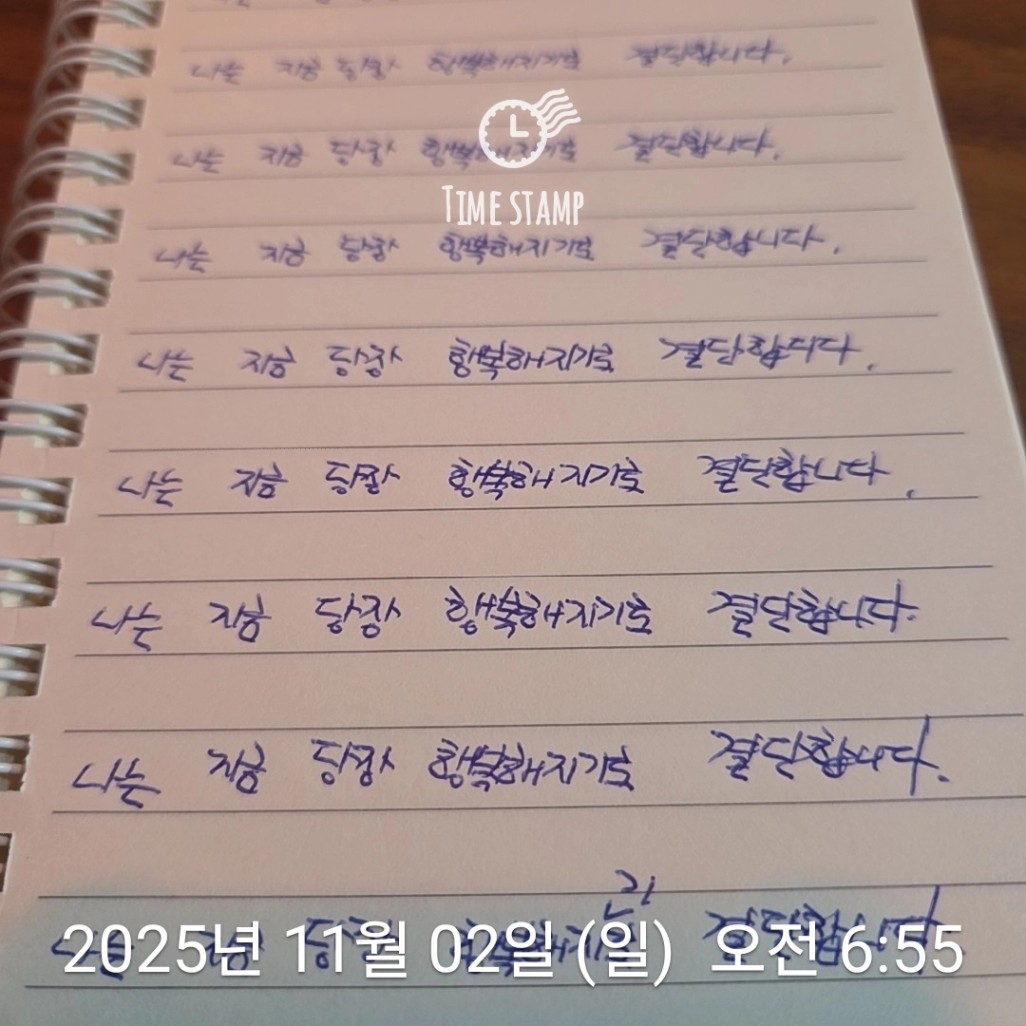 나는 지금 당장 행복해지기로 결단합니다.
나는 지금 당장 행복해지기로 결단합니다.
TIME STAMP
나는 지금 당장 행복해지기로 결단합니다.
나는 지금 당장 행복해지기로 결단합니다.
나는 지금 당장 행복해지기로 결단합니다.
나는 지금 당장 행복해지기로 결단합니다.
나는 지금 당장 행복해지기로 결단합니다.
기
나는 지금 당장 행복해지로 결단합니다
2025년 11월 02일 (일) 오전 6:55